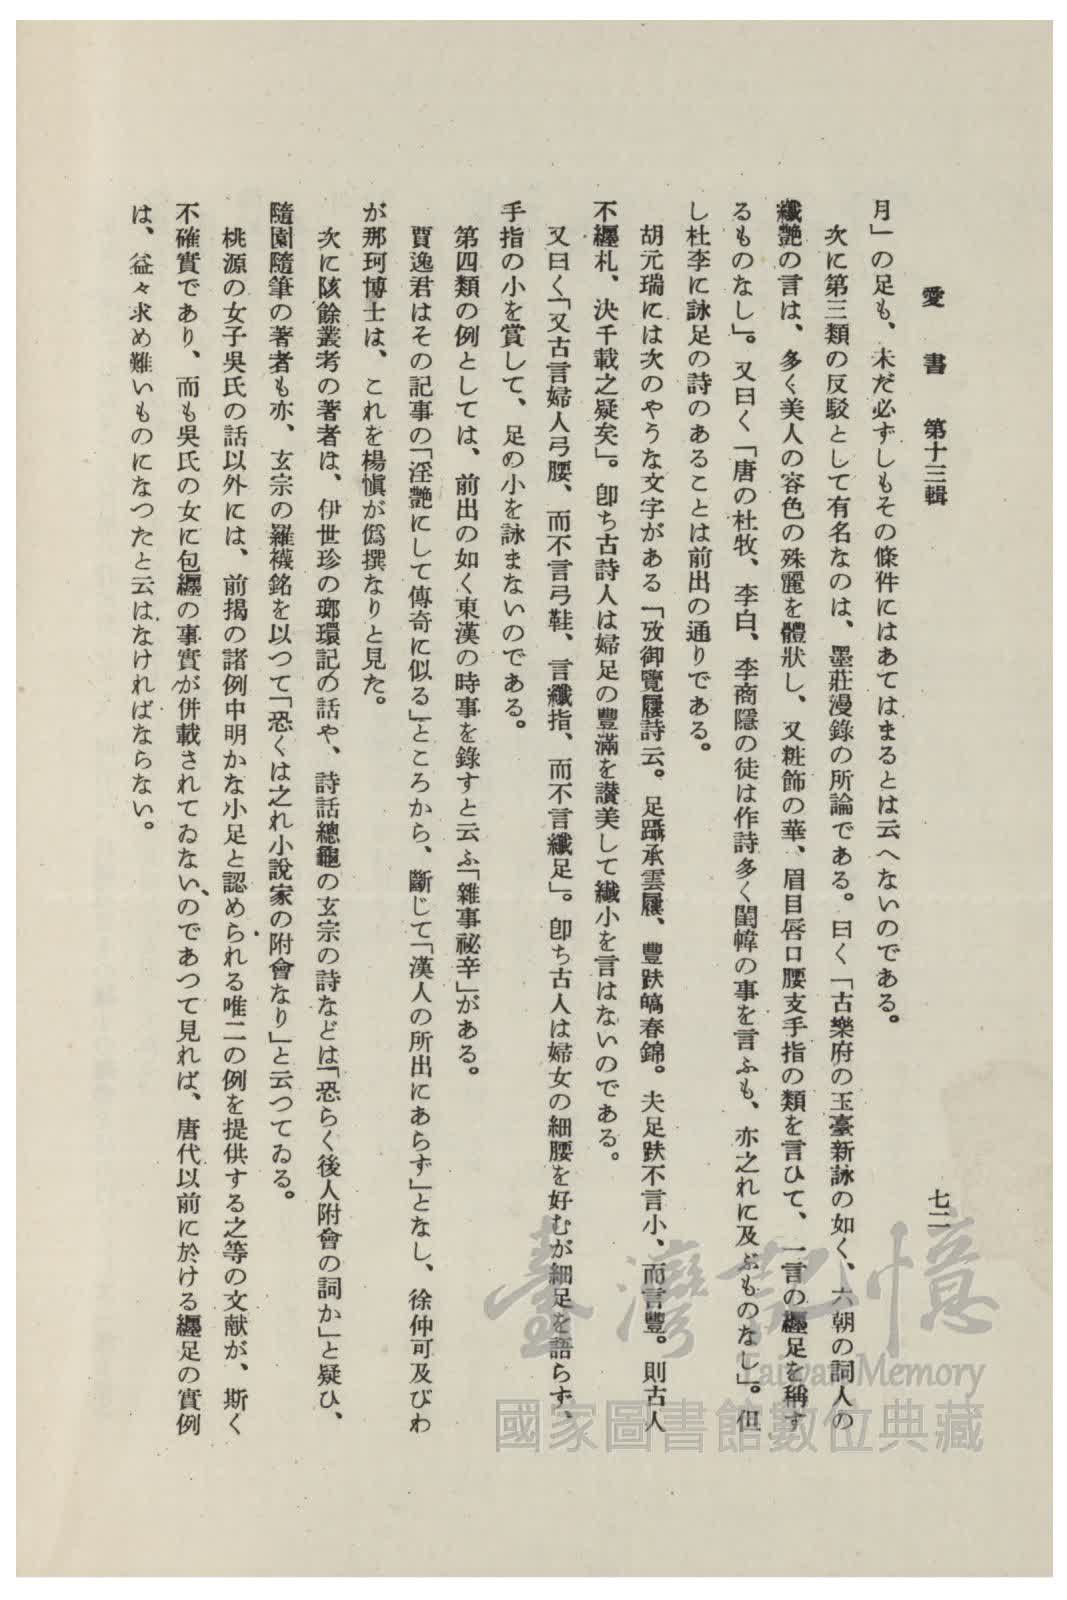 愛書 第十三輯
七二
月」の足も、未だ必ずしもその條件にはあてはまるとは云へないのである。
次に第三類の反駁として有名なのは、墨莊漫錄の所論である。曰く「古樂府の玉臺新詠の如く、六朝の詞人の
纖艷の言は、多く美人の容色の殊麗を體狀し、又粧飾の華、眉目唇口腰支手指の類を言ひて、一言の纒足を稱す
るものなし」。又曰く「唐の杜牧、李白、李商隱の徒は作詩多く閨幃の事を言ふも、亦之れに及ぶものなし」。但
し杜李に詠足の詩のあることは前出の通りである。
胡元瑞には次のやうな文字がある「攷御覽屨詩云。足躡承雲屨、豐趺皜春錦。夫足趺不言小、而言豐。則古人
不纒札、決千載之疑矣」。卽ち古詩人は婦足の豐滿を讃美して纖小を言はないのである。
又曰く「又古言婦人弓腰、而不言弓鞋、言纖指、而不言纖足」。卽ち古人は婦女の細腰を好むが細足を語らず、
手指の小を賞して、足の小を詠まないのである。
第四類の例としては、前出の如く東漢の時事を錄すと云ふ「雜事祕辛」がある。
賈逸君はその記事の「淫艷にして傳奇に似る」ところから、斷じて「漢人の所出にあらず」となし、徐仲可及びわ
が那珂博士は、これを楊愼が僞撰なりと見た。
次に陔餘叢考の著者は、伊世珍の瑯環記の話や、詩話總龜の玄宗の詩などは「恐らく後人附會の詞か」と疑ひ、
隨園隨筆の著者も亦、玄宗の羅襪銘を以つて「恐くは之れ小說家の附會なり」と云つてゐる。
桃源の女子吳氏の話以外には、前揭の諸例中明かな小足と認められる唯二の例を提供する之等の文献が、斯く
不確實であり、而も吳氏の女に包纒の事實が併載されてゐない、のであつて見れば、唐代以前に於ける纒足の實例
は、益々求め難いものになつたと云はなければならない。
臺灣記憶
Taiwan Memory
國家圖書館數位典藏